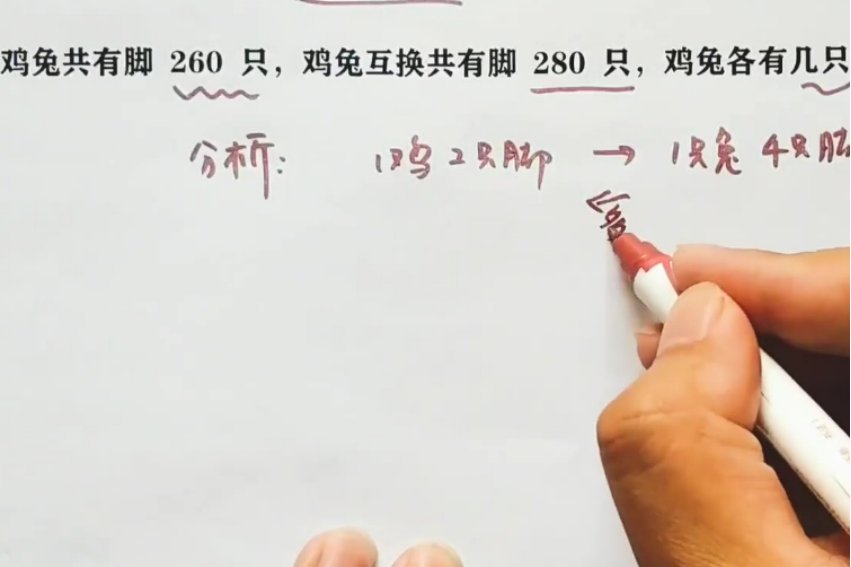 鸡兔共有脚 260 只，鸡兔互换共有脚 280 只，鸡兔各有几只
分析： 1鸡 2只脚 → 1只兔 4只脚
←